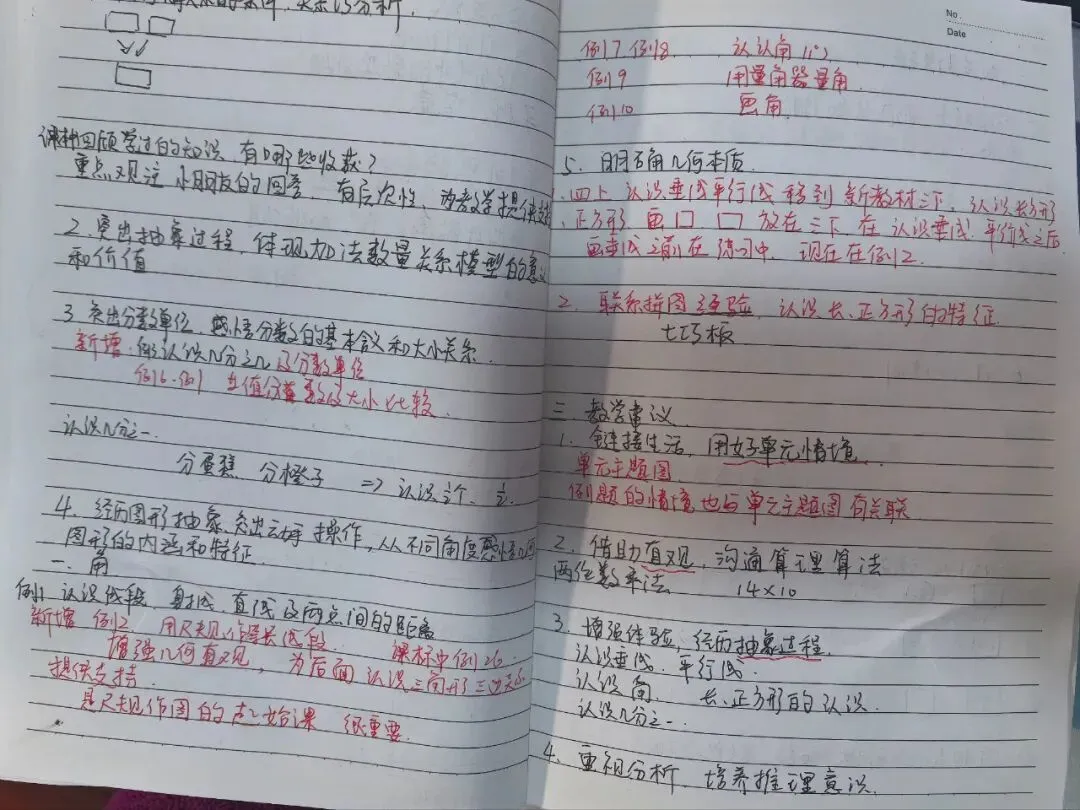 关系的分析
课前回顾学过的知识,有哪些收获?
重点观注 小朋友的回答,有层次性,为教学提供支
2. 突出抽象过程,体现加法数量关系模型的意义
和价值
3. 突出分数单位,感悟分数的基本含义和大小关系.
新增 例5 认识几分之几及分数单位
例6.例7 分数大小比较.
认识几分之一.
分蛋糕 分橙子 => 认识
4. 经历图形抽象,突出动手操作,从不同角度感悟几何
图形的内涵和特征.
一、角
例1 认识线段、射线、直线及两点间的距离
新增 例2 用尺规作等长线段. 课标中例26
增强几何直观,为后面认识三角形三边关系
提供支持.
是尺规作图的起始课 很重要.
No.
Date
例7 例8 认识角 (1°)
例9 用量角器量角.
例10 画角.
5. 明确角几何本质.
1. 四上 认识垂线平行线 移到新教材三下, 认识长方形
、正方形 画□ □ 放在三下 在认识垂线.平行线之后
画垂线之前在练习中. 现在在例12.
2. 联系拼图经验, 认识长、正方形的特征.
七巧板
三 教学建议
1. 链接生活, 用好单元情境.
单元主题图
例题的情境也与单元主题图有关联
2. 借助直观, 沟通算理算法
两位数乘法 14×10
3. 增强体验, 经历抽象过程.
认识垂线. 平行线.
认识角 长、正方形的认识.
认识几分之一.
4. 重视分析, 培养推理意识.